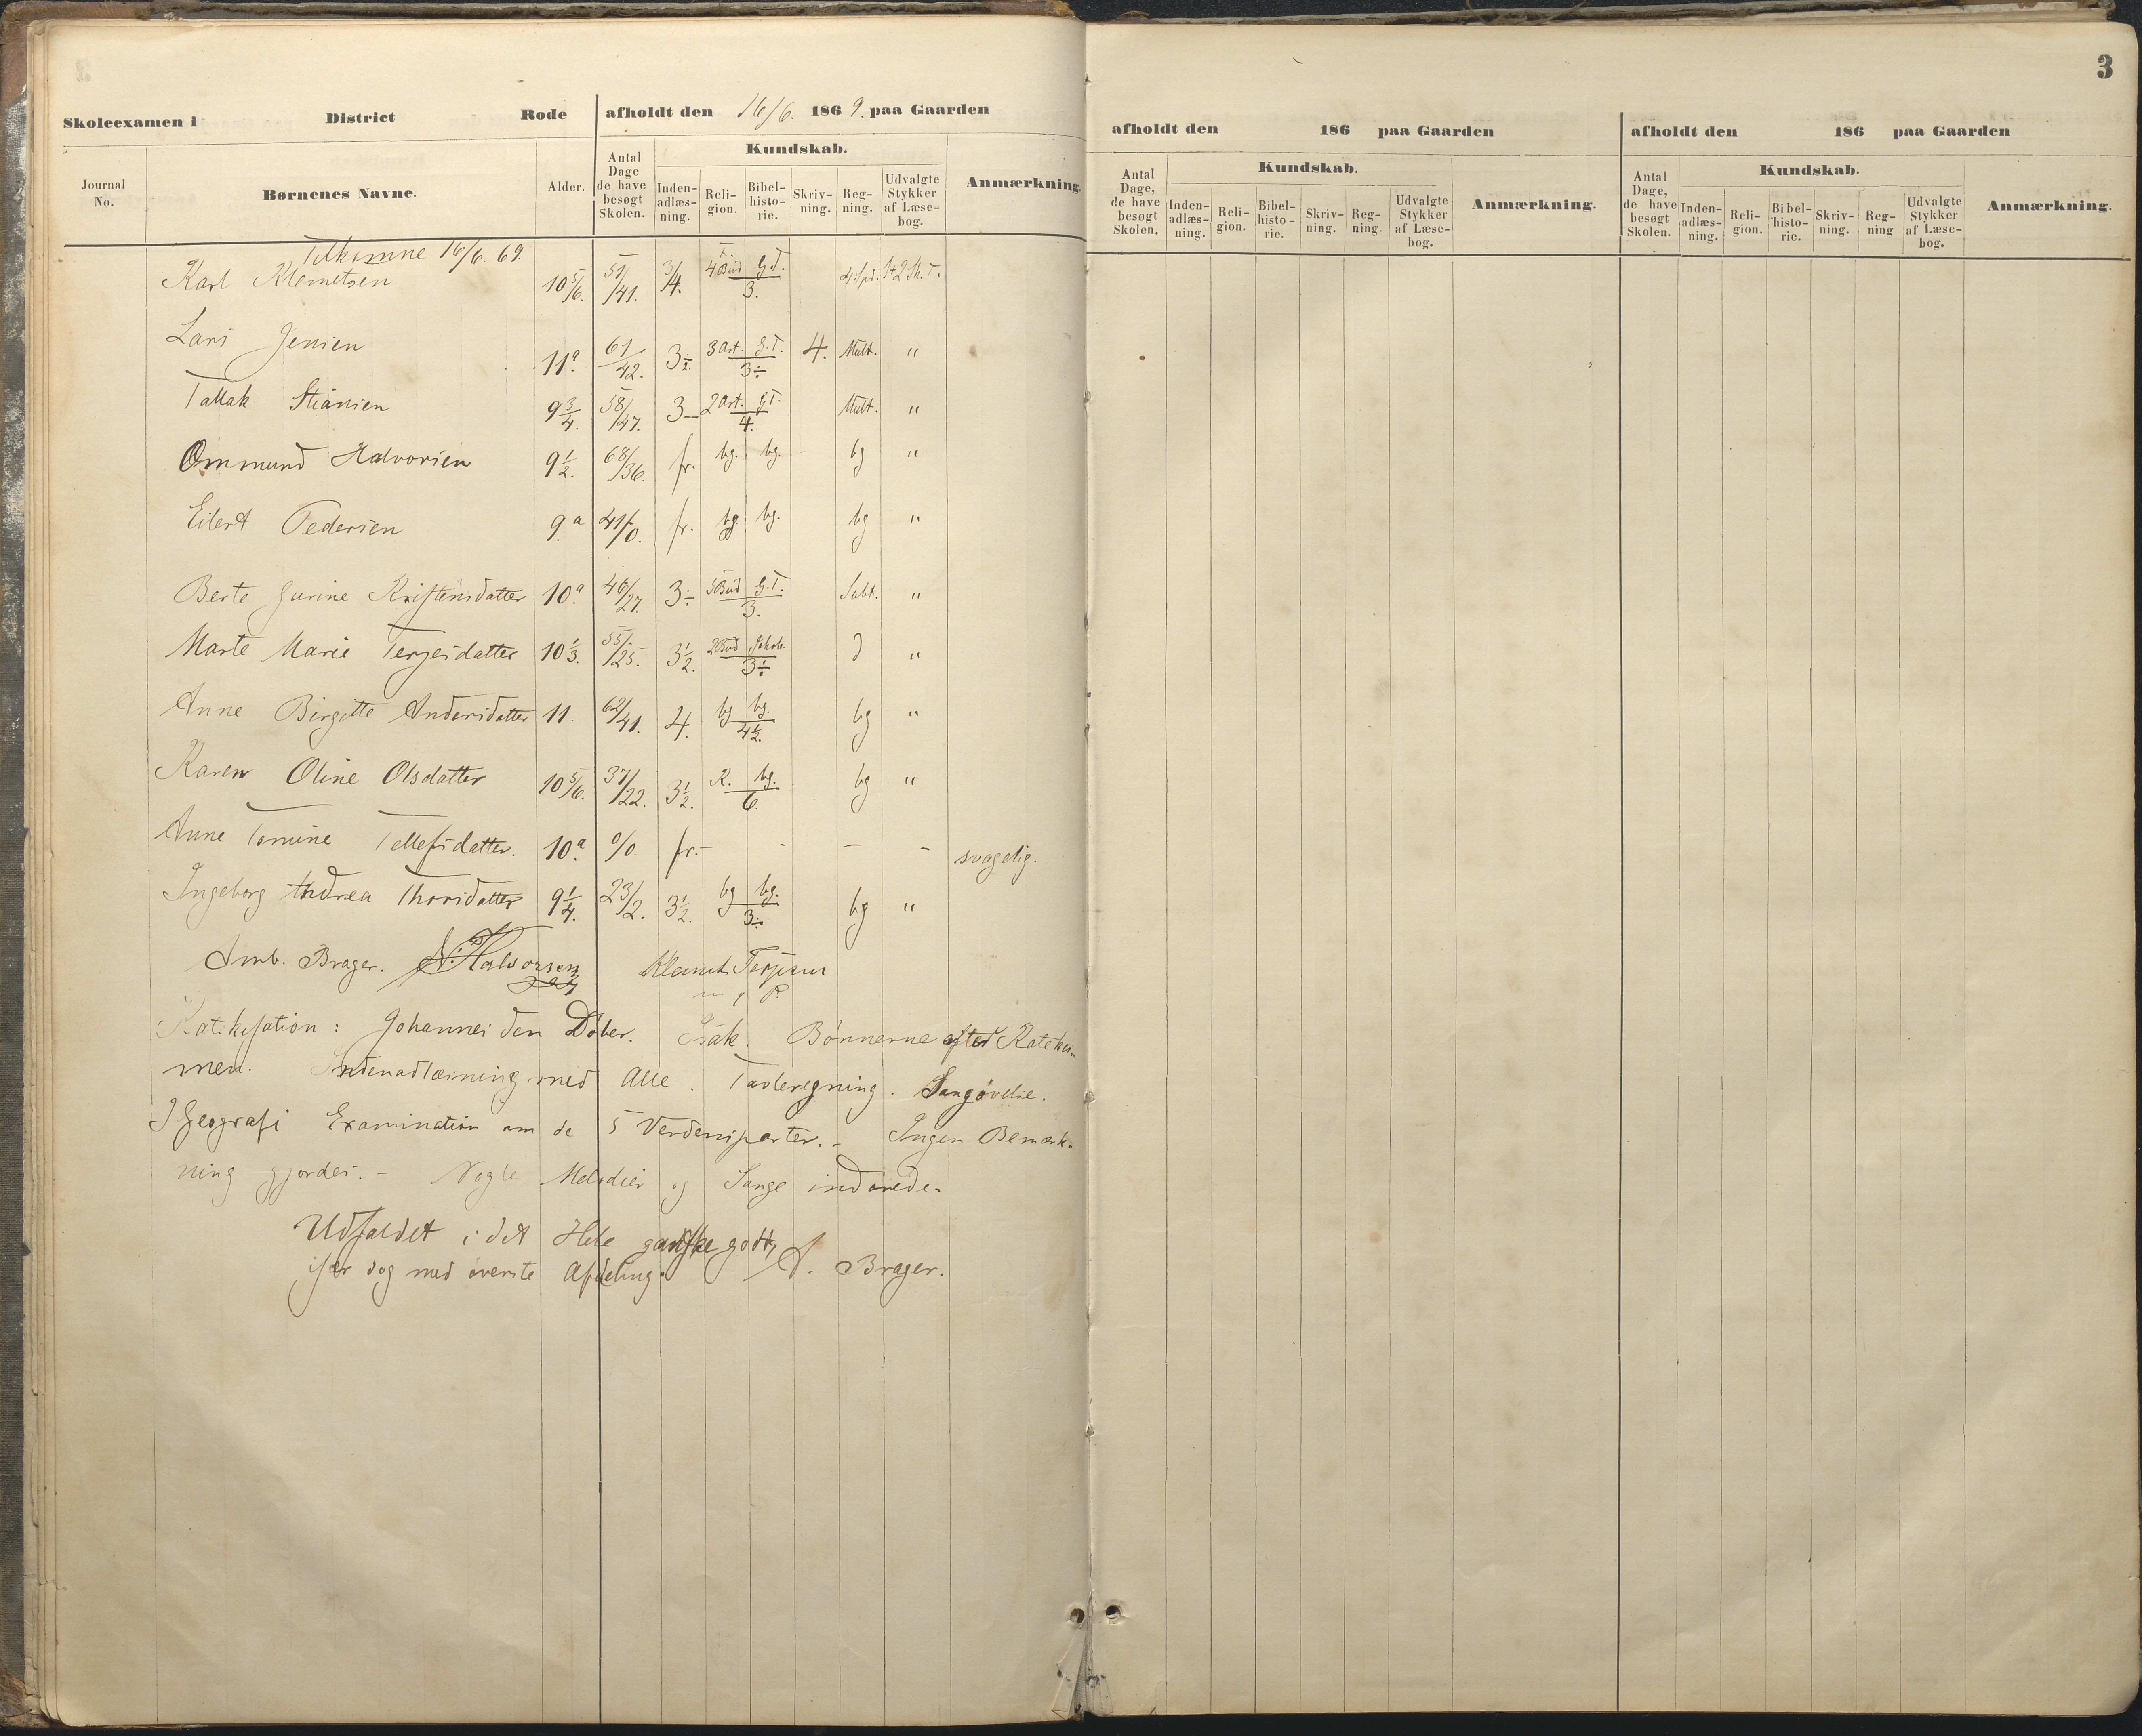 3
Skoleexamen i District Rode afholdt den 16/6. 1869. paa Gaarden
Journal No. Børnenes Navne. Alder. Antal Dage de have besøgt Skolen. Kundskab. Inden-adlæs-ning. Reli-gion. Bibel-histo-rie. Skriv-ning. Reg-ning. Udvalgte Stykker af Læse-bog. Anmærkning.
16/6. 69.
Karl Klemetsen 10 5/6. 51/41. 3/4. 4 Bud G.T. 3. 4 Spd. 1+2 Sk.T.
Lars Jensen 11 a. 61/42. 3÷ 3 Art. G.T. 3÷ 4. Mult. "
Tallak Stiansen 9 3/4. 58/47. 3– 2 Art. G.T. 4. Mult. "
Ommund Halvorsen 9 1/2. 68/36. fr. bg. bg. bg "
Eilert Pedersen 9. a 41/0. fr. bg. bg. bg "
Berte Gurine Kristensdatter 10 a. 46/27. 3÷ 3 Bud G.T. 3. Subt. "
Marte Marie Terjesdatter 10 1/3. 55/25. 3 1/2. 2 Bud Jakob. 3÷ d "
Anne Birgitte Andersdatter 11. 62/41. 4. bg bg. 4 1/2. bg "
Karen Oline Olsdatter 10 5/6. 37/22. 3 1/2. K. bg. 6. bg "
Anne Tomine Tellefsdatter. 10 a. 0/0. fr. – - – – svagelig.
Ingeborg Andrea Thorsdatter 9 1/4. 23/2. 3 1/2. bg bg. 3÷ bg "
Amb. Brager. N. Halvorsen Klemet Terjesen
Katekisation: Johannes den Døber. Isak. Bønnerne efter Katekis-
men. Indenadlæsning med Alle. Tavleregning. Sangøvelse.
I Geografi Examination om de 5 Verdensparter. – Ingen Bemærk-
ning gjordes. – Nogle Melodier og Sange indøvede.
Udfaldet i det Hele ganske godt,
især dog med øverste Afdeling. A. Brager.
afholdt den 186 paa Gaarden
Antal Dage, de have besøgt Skolen. Kundskab. Inden-adlæs-ning. Reli-gion. Bibel-histo-rie. Skriv-ning. Reg-ning. Udvalgte Stykker af Læse-bog. Anmærkning.
afholdt den 186 paa Gaarden
Antal Dage, de have besøgt Skolen. Kundskab. Inden-adlæs-ning. Reli-gion. Bibel-histo-rie. Skriv-ning. Reg-ning Udvalgte Stykker af Læse-bog. Anmærkning.